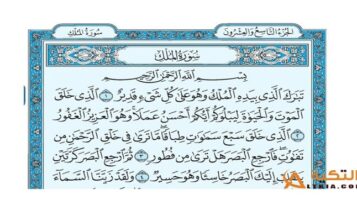 الجزء التاسع والعشرون
سورة الملك
سُورَةُ المُلْكِ
بِسْمِ اللَّهِ الرَّحْمَٰنِ الرَّحِيمِ
تَبَٰرَكَ ٱلَّذِى بِيَدِهِ ٱلْمُلْكُ وَهُوَ عَلَىٰ كُلِّ شَىْءٍ قَدِيرٌ ١ ٱلَّذِى خَلَقَ
ٱلْمَوْتَ وَٱلْحَيَوٰةَ لِيَبْلُوَكُمْ أَيُّكُمْ أَحْسَنُ عَمَلًا وَهُوَ ٱلْعَزِيزُ ٱلْغَفُورُ
٢ ٱلَّذِى خَلَقَ سَبْعَ سَمَٰوَٰتٍ طِبَاقًا مَّا تَرَىٰ فِى خَلْقِ ٱلرَّحْمَٰنِ مِن
تَفَٰوُتٍ فَٱرْجِعِ ٱلْبَصَرَ هَلْ تَرَىٰ مِن فُطُورٍ ٣ ثُمَّ ٱرْجِعِ ٱلْبَصَرَ كَرَّتَيْنِ
إِلَيْكَ ٱلْبَصَرُ خَاسِئًا وَهُوَ حَسِيرٌ ٤ وَلَقَدْ زَيَّنَّا ٱلسَّمَآءَ